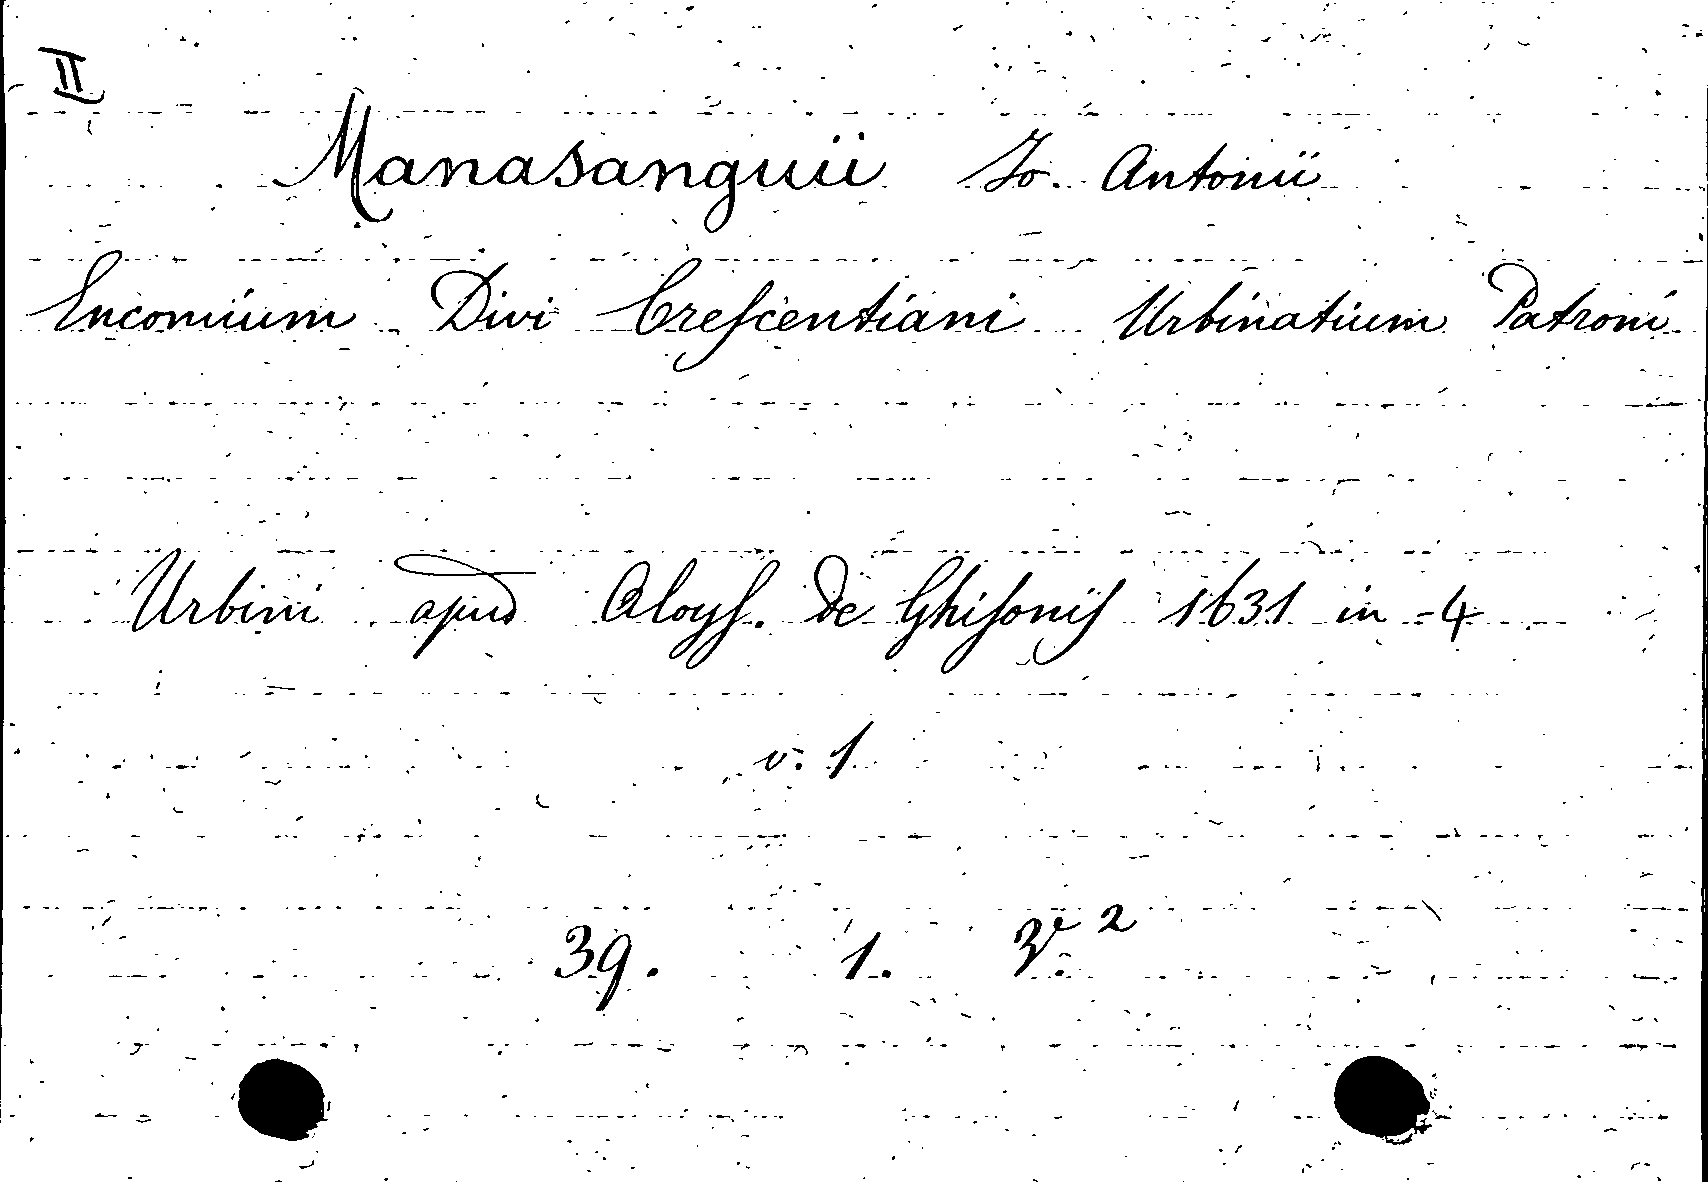 II
Manasanguii Jo. Antonii
Encomium Divi Creſcentiani Urbinatium Patroni
Urbini apud Aloyſ. de Ghiſoniſ 1631 in-4
v. 1
39. 1.